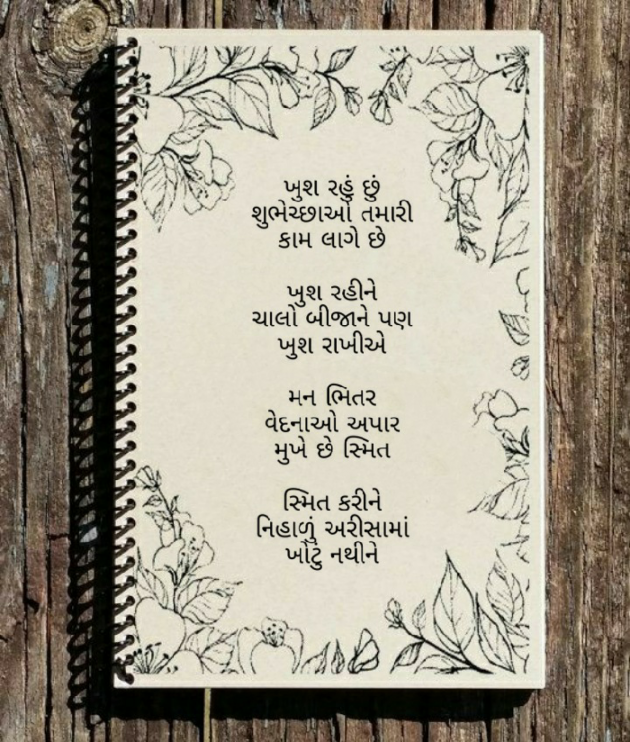 ખુશ રહું છું
શુભેચ્છાઓ તમારી
કામ લાગે છે
ખુશ રહીને
ચાલો બીજાને પણ
ખુશ રાખીએ
મન ભિતર
વેદનાઓ અપાર
મુખે છે સ્મિત
સ્મિત કરીને
નિહાળું અરીસામાં
ખોટું નથીને